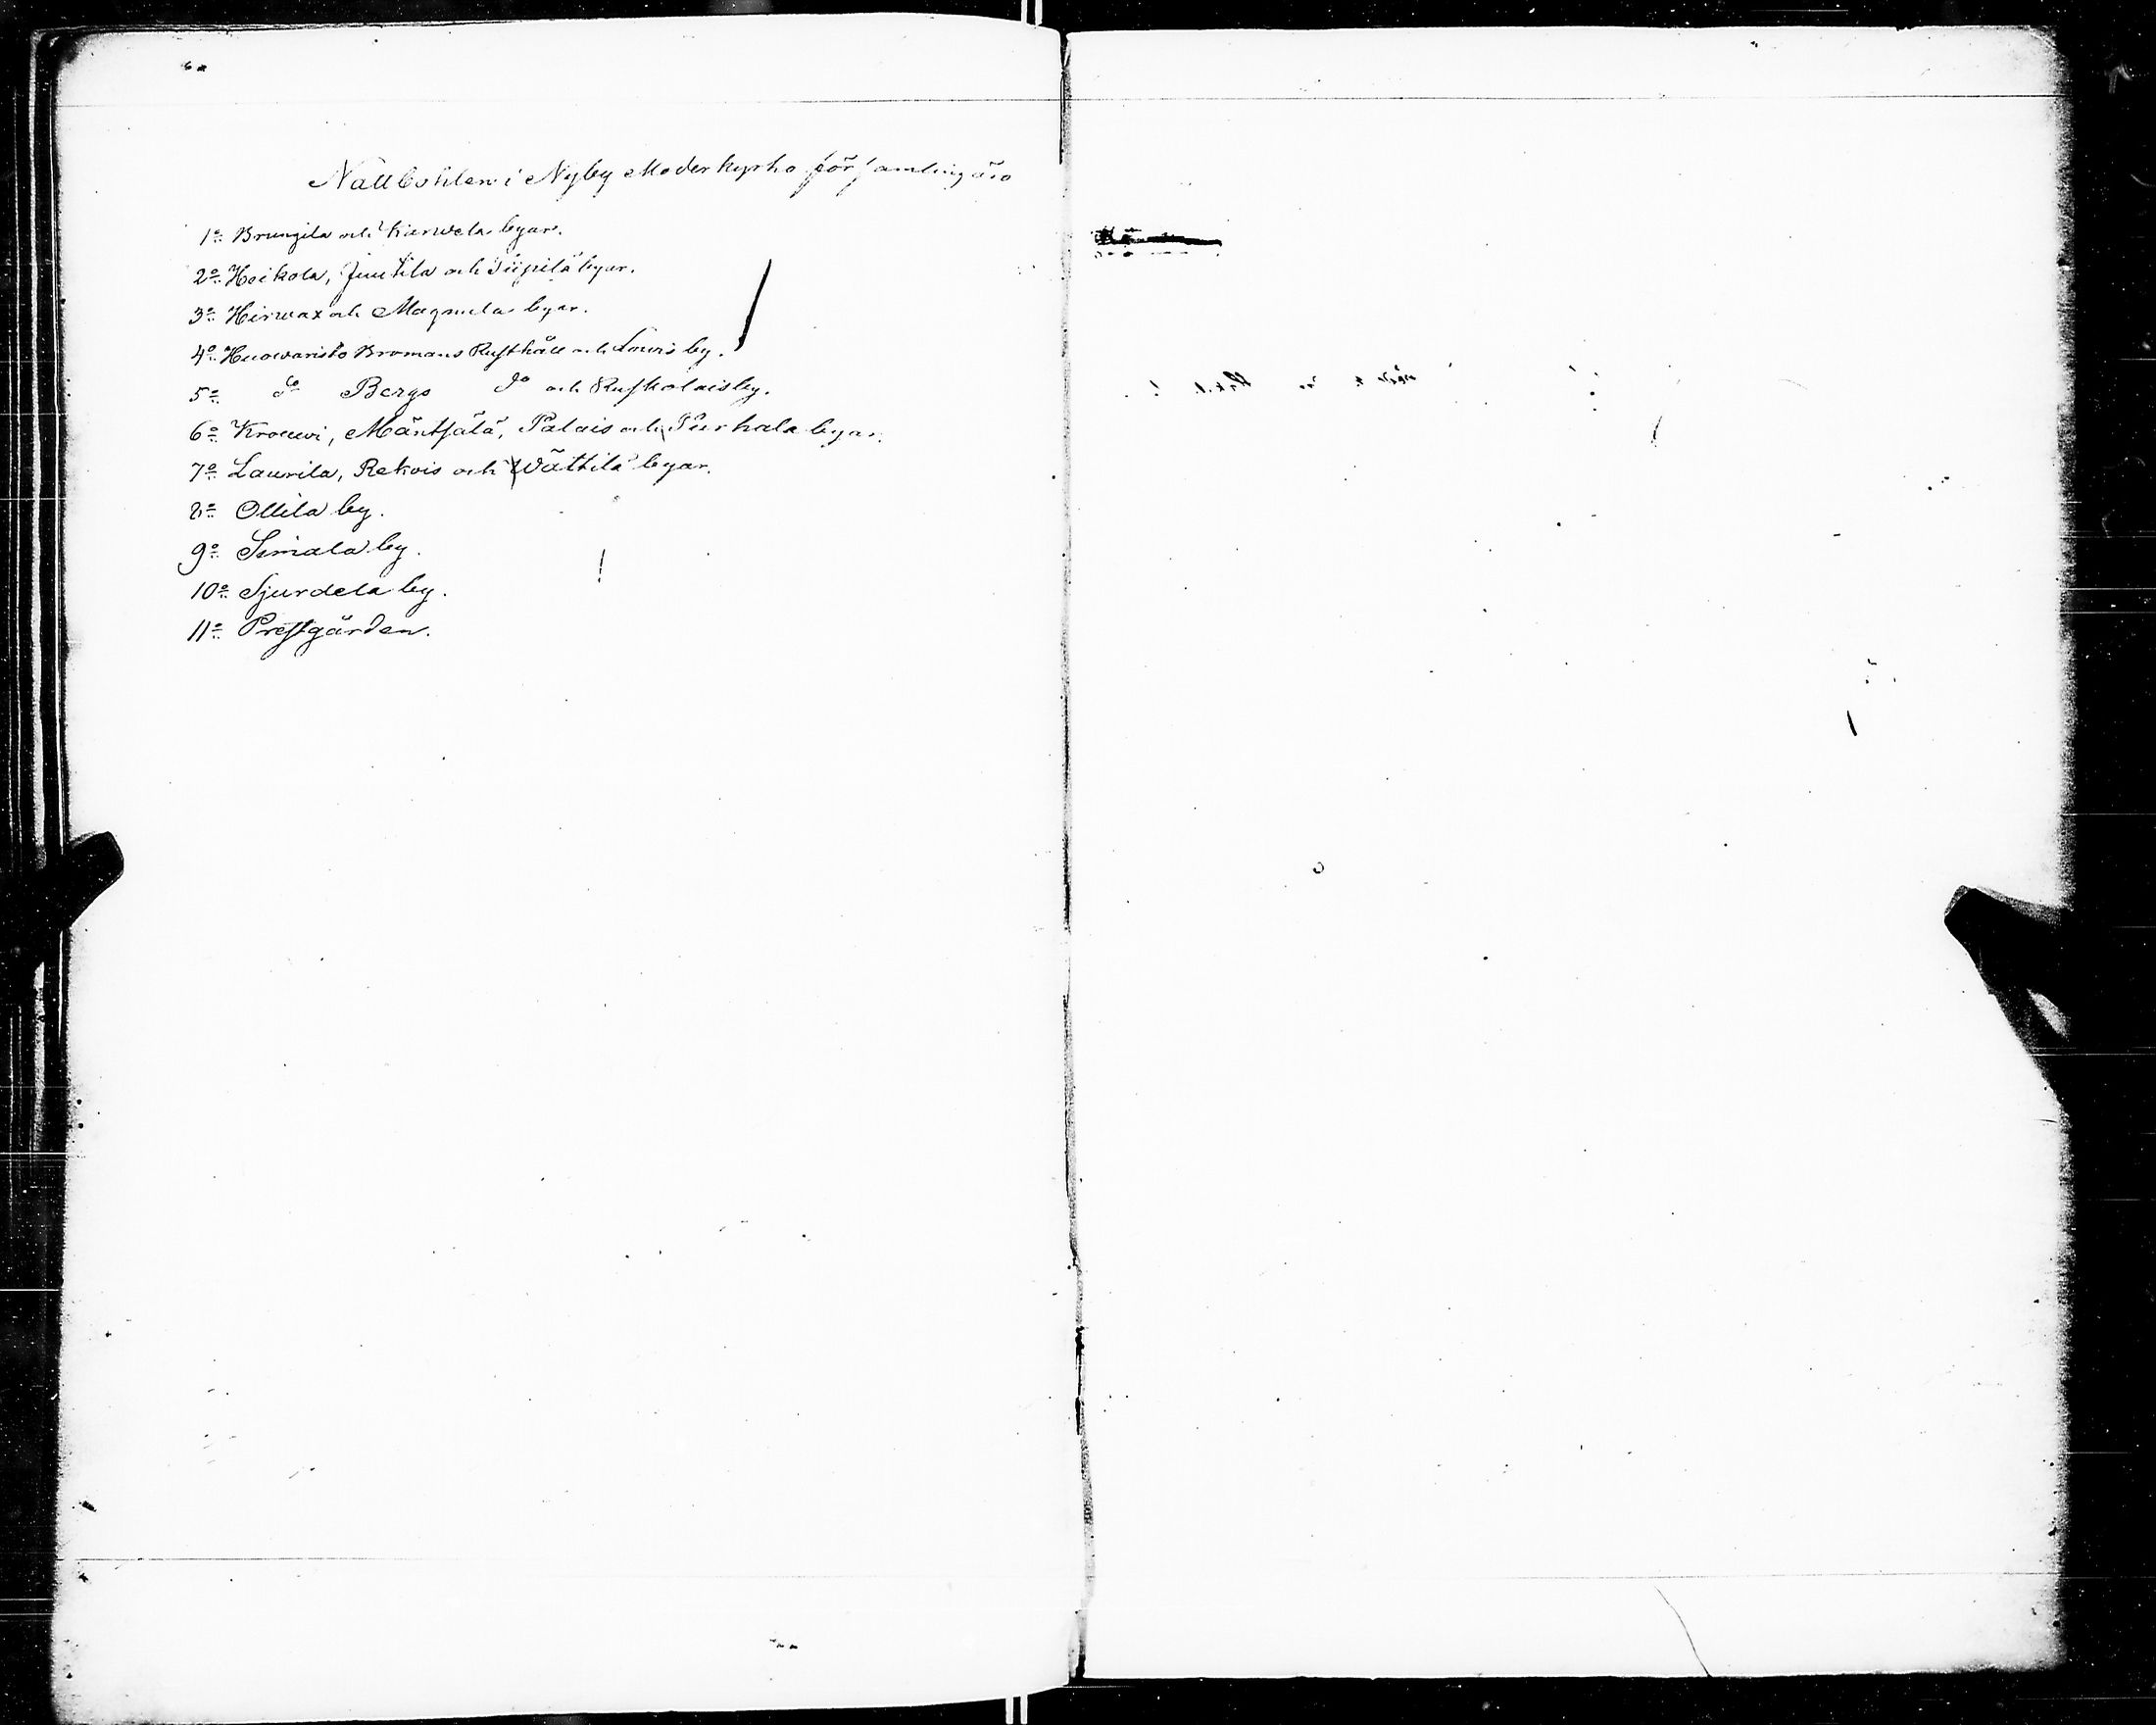 Nattbohlen i Nyby Moderkyrko församling äro
1o Brungila och Karwela byar.
2o Heikola, Juutila och Siipilä byar.
3o Hirwax och Magnula byar.
4o Huowaristo Bromans Rusthåll och Louis by.
5o do Bergs do och Ruskolais by.
6o Krouwi, Mäntsälä, Palais och Purhala byar.
7o Laurila, Rekois och Wättilä byar.
8o Ollila by.
9o Simala by.
10o Sjurdela by.
11o Prestgården.